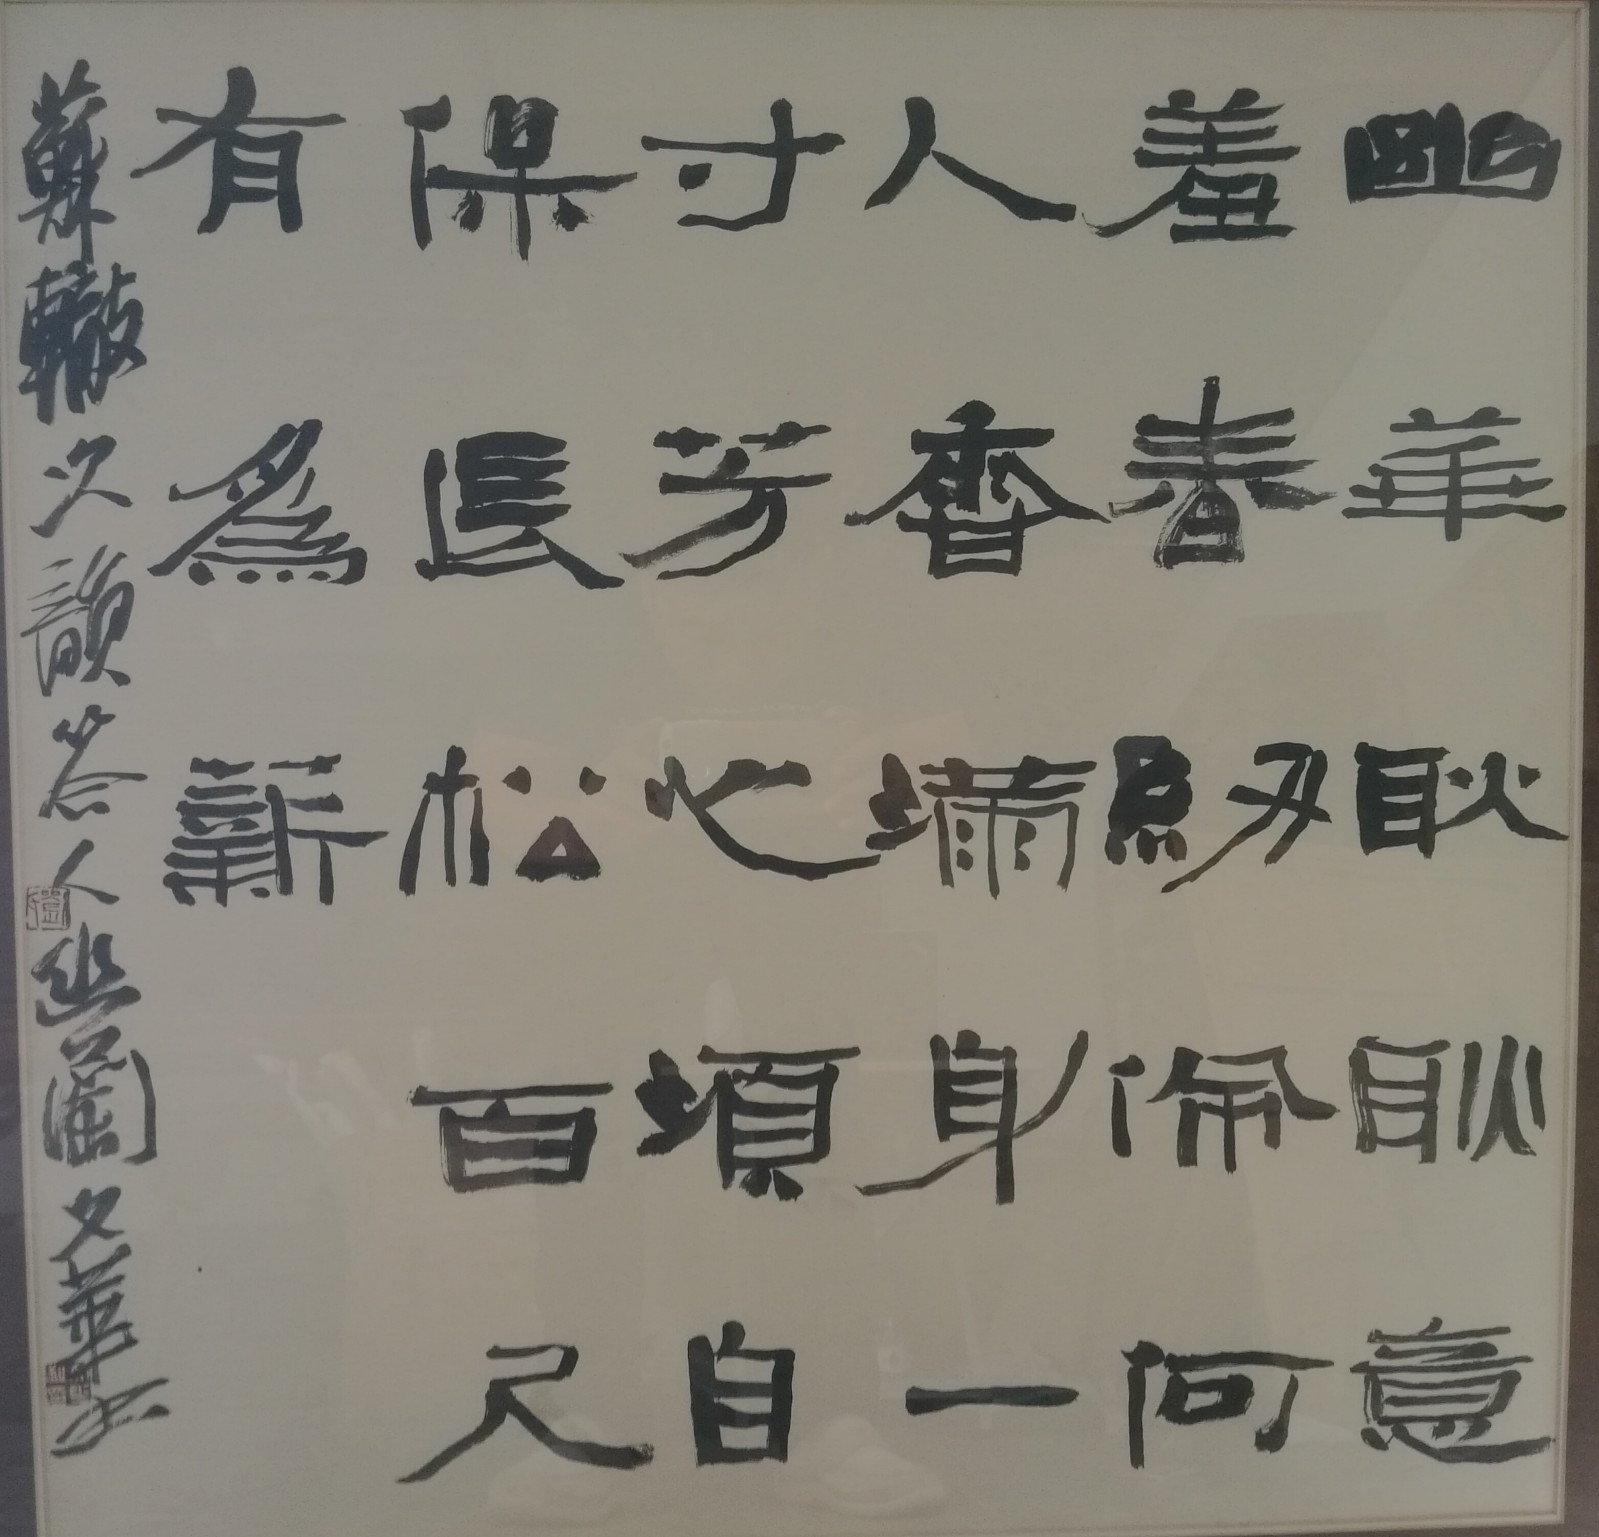 幽華耿耿意
羞春紉佩何
人香滿身一
寸芳心須自
保長松百尺
有為薪
蘇轍次韻答人幽蘭文華書